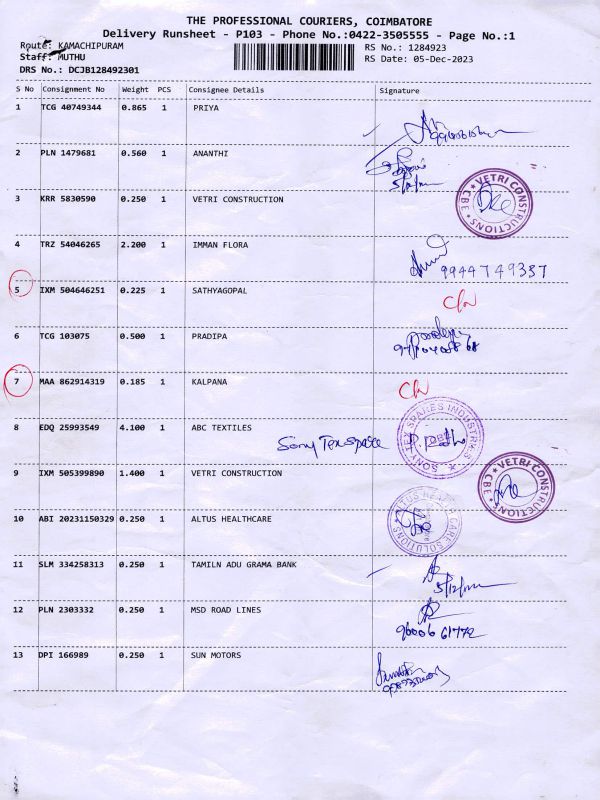 THE PROFESSIONAL COURIERS, COIMBATORE
Delivery Runsheet - P103 - Phone No.:0422-3505555 - Page No.:1
Route: KAMACHIPURAM RS No.: 1284923
Staff: MUTHU RS Date: 05-Dec-2023
DRS No.: DCJB128492301
S No Consignment No Weight PCS Consignee Details Signature
1 TCG 40749344 0.865 1 PRIYA
2 PLN 1479681 0.560 1 ANANTHI
3 KRR 5830590 0.250 1 VETRI CONSTRUCTION
VETRI CONSTRUCTIONS CBE
4 TRZ 54046265 2.200 1 IMMAN FLORA
9944749337
5 IXM 504646251 0.225 1 SATHYAGOPAL
6 TCG 103075 0.500 1 PRADIPA
7 MAA 862914319 0.185 1 KALPANA
8 EDQ 25993549 4.100 1 ABC TEXTILES
Sony Tex spare
SONY TEX SPARES INDUSTRIES
9 IXM 505399890 1.400 1 VETRI CONSTRUCTION
VETRI CONSTRUCTIONS CBE
10 ABI 20231150329 0.250 1 ALTUS HEALTHCARE
ALTUS HEALTH CARE SOLUTIONS
11 SLM 334258313 0.250 1 TAMILN ADU GRAMA BANK
12 PLN 2303332 0.250 1 MSD ROAD LINES
96006 61772
13 DPI 166989 0.250 1 SUN MOTORS